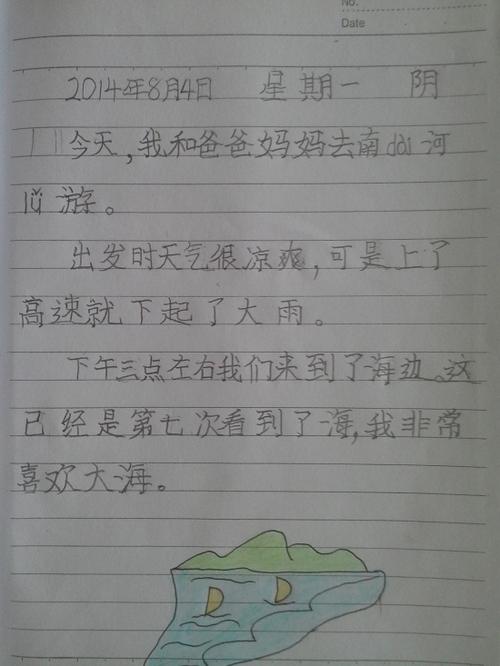 No.
Date
2014年8月4日 星期一 阴
今天,我和爸爸妈妈去南dài河
lǚ游。
出发时天气很凉爽,可是上了
高速就下起了大雨。
下午三点左右我们来到了海边。这
已经是第七次看到了海,我非常
喜欢大海。